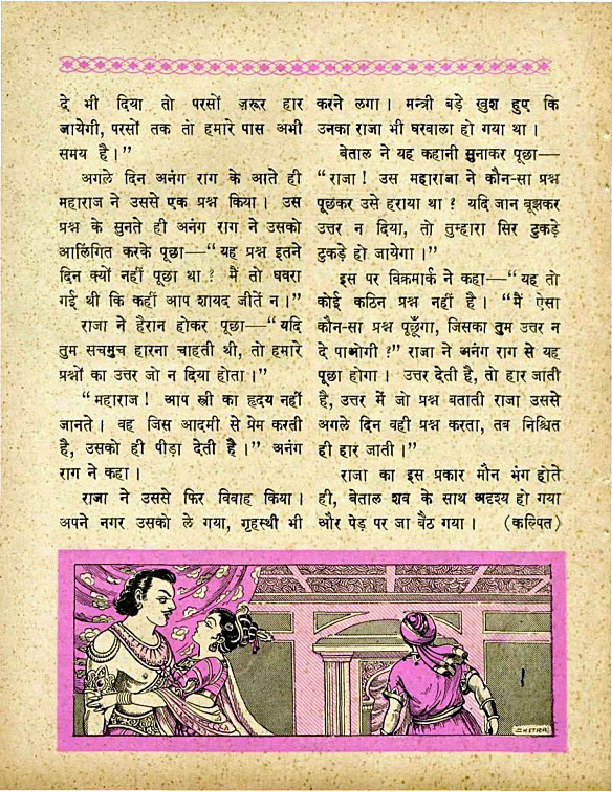 दे भी दिया तो परसों ज़रूर हार
जायेगी, परसों तक तो हमारे पास अभी
समय है।”
अगले दिन अनंग राग के आते ही
महाराज ने उससे एक प्रश्न किया। उस
प्रश्न के सुनते ही अनंग राग ने उसको
आलिंगित करके पूछा—“यह प्रश्न इतने
दिन क्यों नहीं पूछा था? मैं तो घबरा
गई थी कि कहीं आप शायद जीतें न।”
राजा ने हैरान होकर पूछा—“यदि
तुम सचमुच हारना चाहती थी, तो हमारे
प्रश्नों का उत्तर जो न दिया होता।”
“महाराज! आप स्त्री का हृदय नहीं
जानते। वह जिस आदमी से प्रेम करती
है, उसको ही पीड़ा देती है।” अनंग
राग ने कहा।
राजा ने उससे फिर विवाह किया।
अपने नगर उसको ले गया, गृहस्थी भी
करने लगा। मन्त्री बड़े खुश हुए कि
उनका राजा भी घरवाला हो गया था।
बेताल ने यह कहानी सुनाकर पूछा—
“राजा! उस महाराजा ने कौन-सा प्रश्न
पूछकर उसे हराया था? यदि जान बूझकर
उत्तर न दिया, तो तुम्हारा सिर टुकड़े
टुकड़े हो जायेगा।”
इस पर विक्रमार्क ने कहा—“यह तो
कोई कठिन प्रश्न नहीं है। “मैं ऐसा
कौन-सा प्रश्न पूछूँगा, जिसका तुम उत्तर न
दे पाओगी?” राजा ने अनंग राग से यह
पूछा होगा। उत्तर देती है, तो हार जाती
है, उत्तर में जो प्रश्न बताती राजा उससे
अगले दिन वही प्रश्न करता, तब निश्चित
ही हार जाती।”
राजा का इस प्रकार मौन भंग होते
ही, बेताल शव के साथ अदृश्य हो गया
और पेड़ पर जा बैठ गया। (कल्पित)
CHITRA